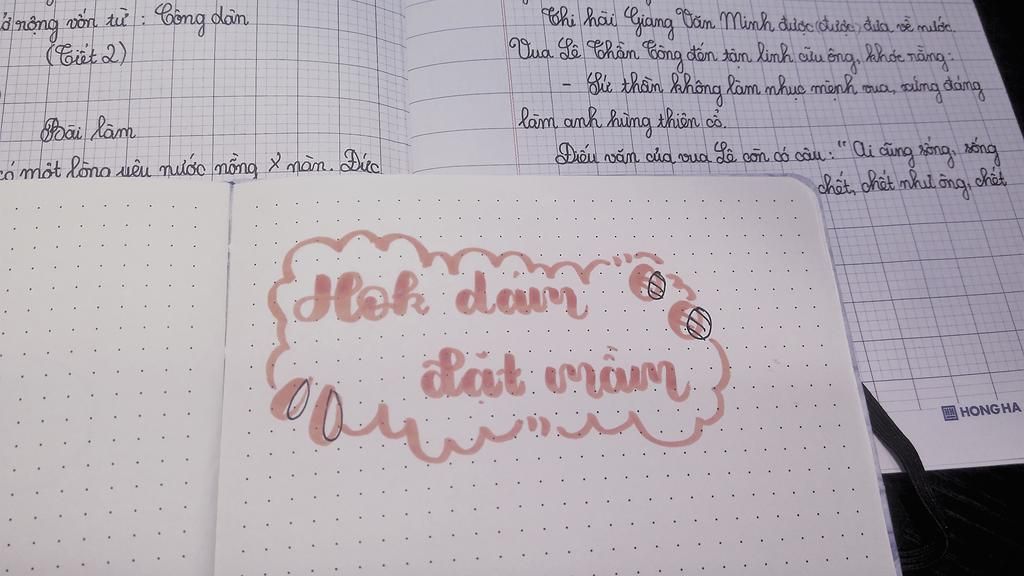 ở rộng vốn từ : Công dân
(Tiết 2)
Bài làm
có một lòng yêu nước nồng nàn. Đức
Thi hài Giang Văn Minh được (được) đưa về nước.
Vua Lê Thần Tông đến tận linh cữu ông, khóc rằng:
- Sứ thần không làm nhục mệnh vua, xứng đáng
làm anh hùng thiên cổ.
Điếu văn của vua Lê còn có câu: "Ai cũng sống, sống
chết, chết như ông, chết
Hok dám
đặt mầm
HONG HA